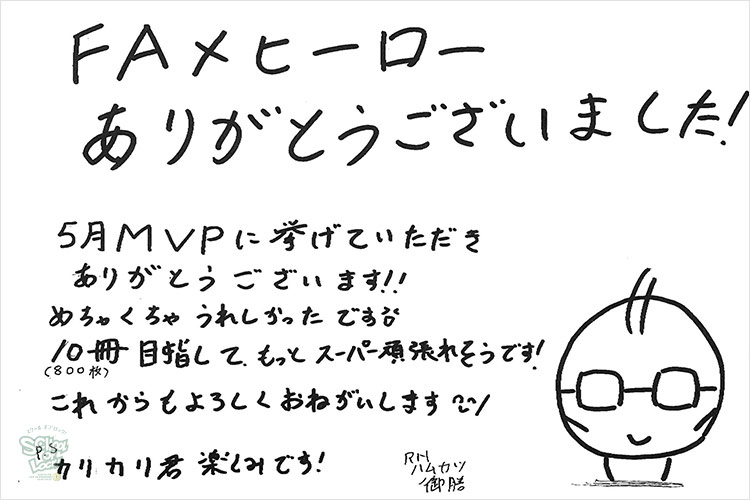 FAメヒーロー
ありがとうございました!
5月MVPに挙げていただき
ありがとうございます!!
めちゃくちゃうれしかったです
10冊目指して、もっとスーパー頑張れそうです!
(800枚)
これからもよろしくおねがいします
P.S
カリカリ君楽しみです!
RN
ハムカツ
御膳